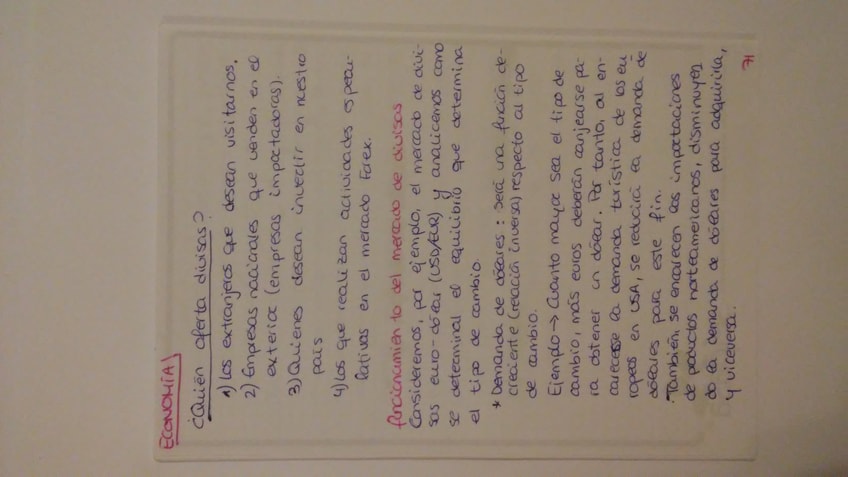 ECONOMÍA
¿Quién oferta divisas?
1) Los extranjeros que desean visitarnos.
2) Empresas nacionales que venden en el
exterior (empresas impactadoras).
3) Quienes desean invertir en nuestro
país
4) Los que realizan actividades especu-
lativas en el mercado Forex.
funcionamiento del mercado de divisas
Consideremos, por ejemplo, el mercado de divi-
sas euro-dólar (USD/EUR) y analicemos como
se determinal el equilibrio que determina
el tipo de cambio.
* Demanda de dólares: Será una función de-
creciente (relación inversa) respecto al tipo
de cambio.
Ejemplo → Cuanto mayor sea el tipo de
cambio, más euros deberán canjearse pa-
ra obtener un dólar. Por tanto, al en-
carecerse la demanda turística de los eu
ropeos en USA, se reducirá la demanda de
dólares para este fin.
También, se encarecen las importaciones
de productos norteamericanos, disminuyen
do la demanda de dólares para adquirirla,
y viceversa.
71